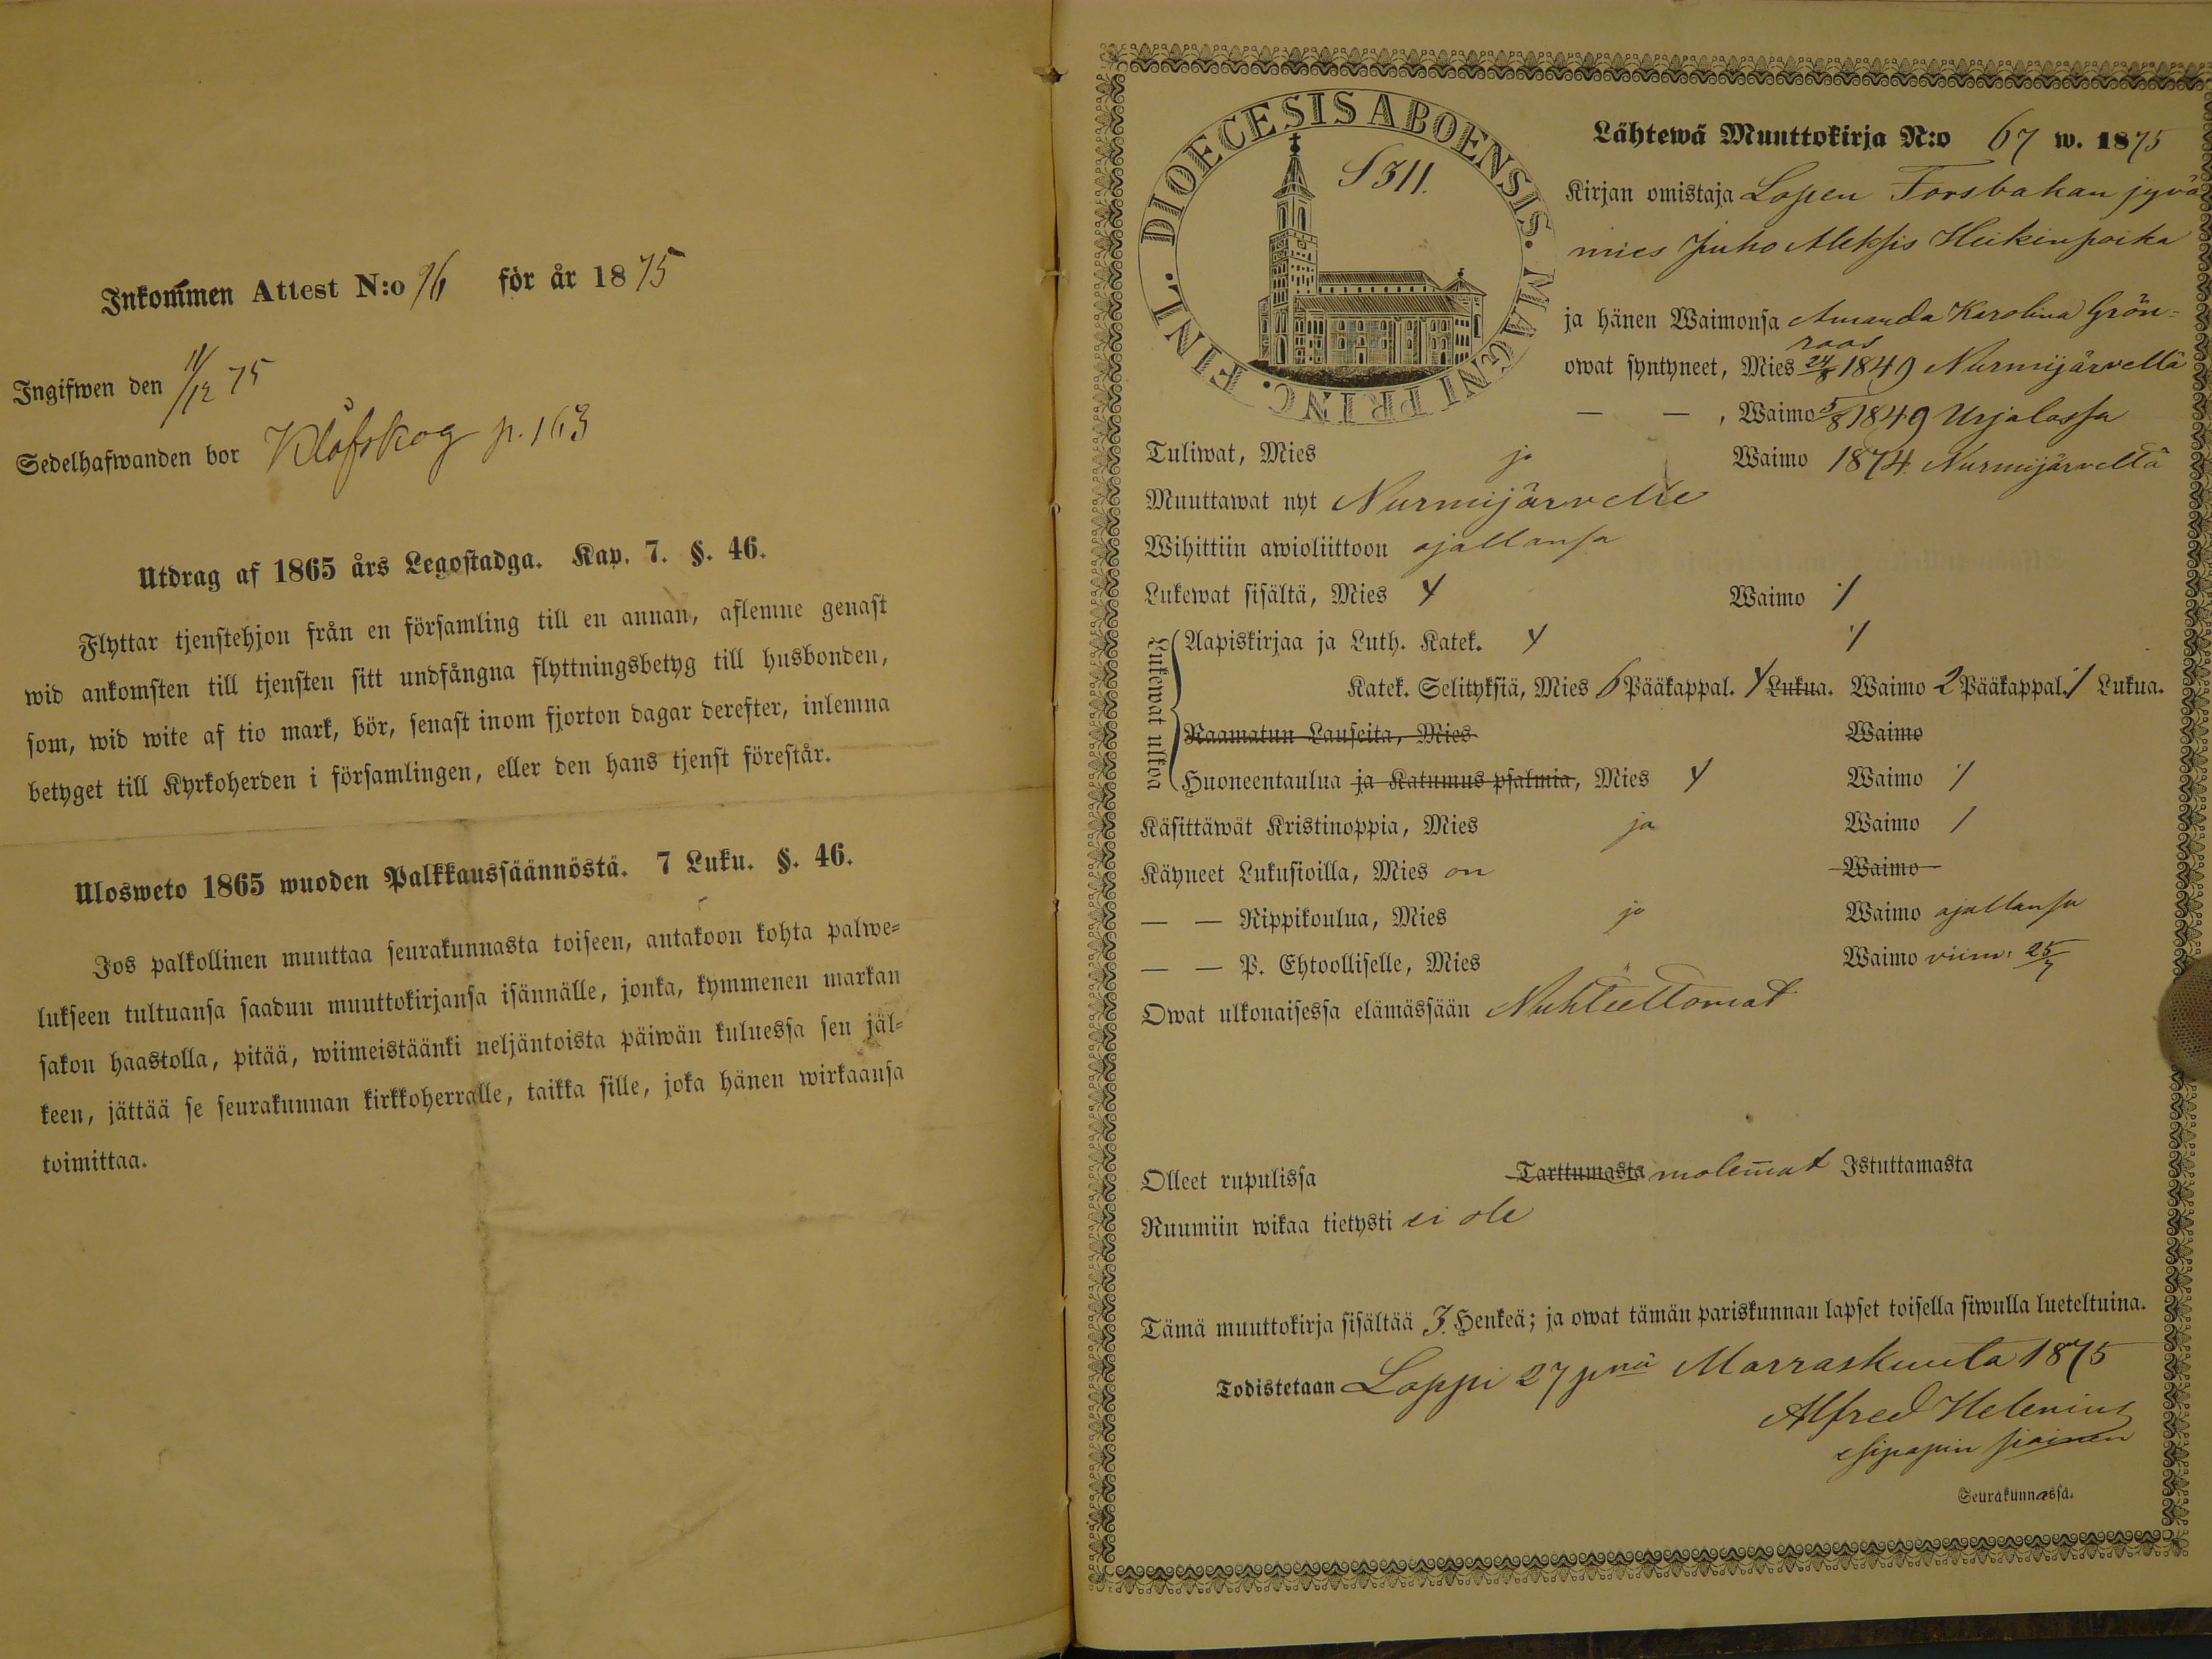 Inkommen Attest N:o 96 för år 1875
Ingifwen den 11/12 75
Sedelhafwanden bor Klöfskog p. 163
Utdrag af 1865 års Legostadga. Kap. 7. §. 46.
Flyttar tjenstehjon från en församling till en annan, aflemne genast
wid ankomsten till tjensten sitt undfångna flyttningsbetyg till husbonden,
som, wid wite af tio mark, bör, senast inom fjorton dagar derefter, inlemna
betyget till Kyrkoherden i församlingen, eller den hans tjenst förestår.
Ulosweto 1865 wuoden Palkkaussäännöstä. 7 Luku. §. 46.
Jos palkollinen muuttaa seurakunnasta toiseen, antakoon kohta palwe=
lukseen tultuansa saadun muuttokirjansa isännälle, jonka, kymmenen markan
sakon haastolla, pitää, wiimeistäänki neljäntoista päiwän kuluessa sen jäl=
keen, jättää se seurakunnan kirkkoherralle, taikka sille, joka hänen wirkaansa
toimittaa.
DIOECESIS ABOENSIS. MAGNI PRINC. FINL.
S 311.
Lähtewä Muuttokirja N:o 67 w. 1875
Kirjan omistaja Lopen Forsbakan jyvä
mies Juho Aleksis Heikinpoika
ja hänen Waimonsa Amanda Karolina Grön=
roos
owat syntyneet, Mies 24/8 1849 Nurmijärvellä
— — , Waimo 5/8 1849 Urjalassa
Tuliwat, Mies jo Waimo 1874 Nurmijärveltä
Muuttawat nyt Nurmijärvelle
Wihittiin awioliittoon ajallansa
Lukewat sisältä, Mies Waimo
Lukewat ulkoa
Aapiskirjaa ja Luth. Katek.
Katek. Selityksiä, Mies 6 Pääkappal. Lukua. Waimo 2 Pääkappal. Lukua.
Raamatun Lauseita, Mies Waimo
Huoneentaulua ja Katumus psalmia, Mies Waimo
Käsittäwät Kristinoppia, Mies ja Waimo
Käyneet Lukusioilla, Mies on Waimo
— — Rippikoulua, Mies jo Waimo ajallansa
— — P. Ehtoolliselle, Mies Waimo viim: 25/7
Owat ulkonaisessa elämässään Nuhteettomat
Olleet rupulissa Tarttumasta molemat Istuttamasta
Ruumiin wikaa tietysti ei ole
Tämä muuttokirja sisältää 3. Henkeä; ja owat tämän pariskunnan lapset toisella siwulla lueteltuina.
Todistetaan Loppi 27 pnä Marraskuuta 1875
Alfred Helenius
esipapin siainen
Seurakunnassa.